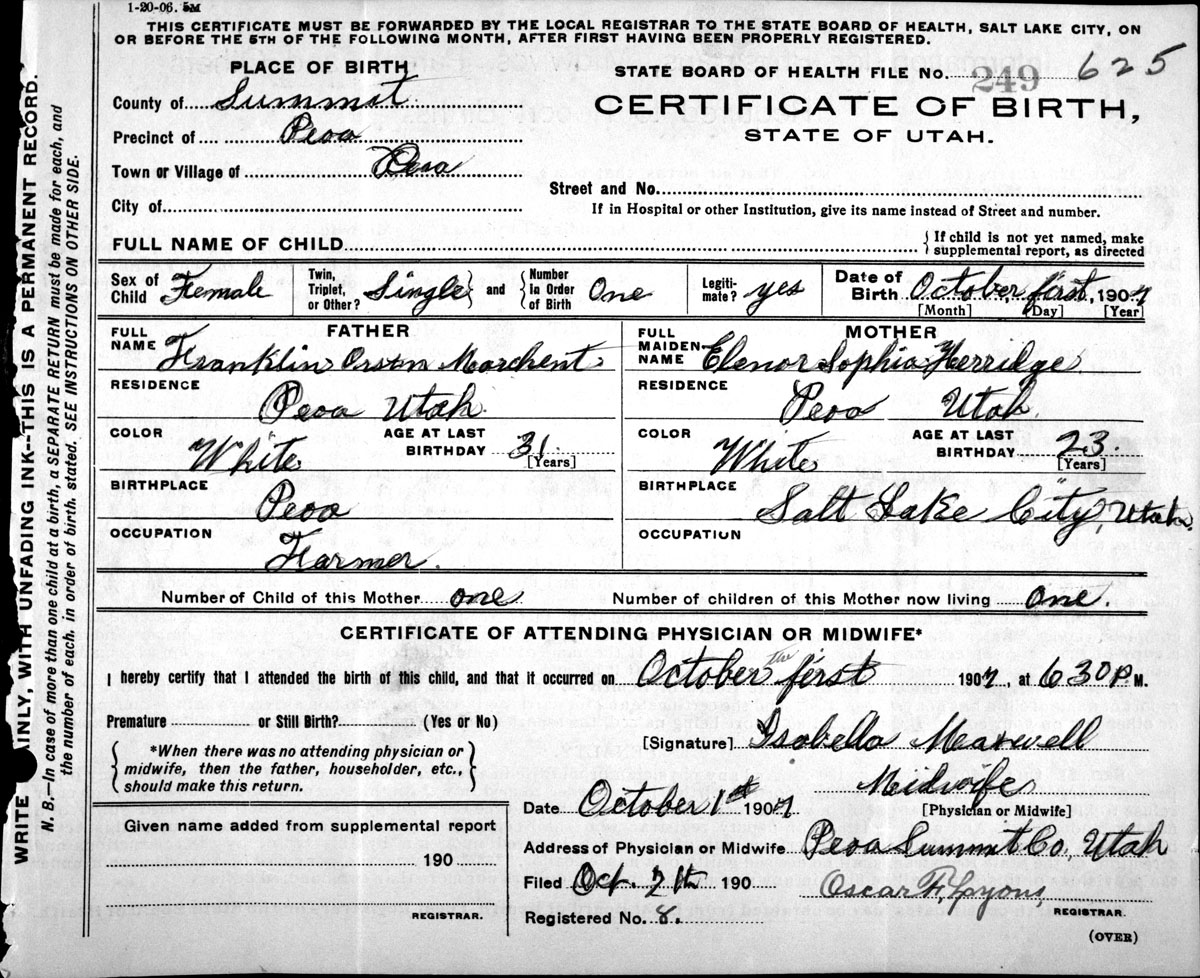 1-20-06. 5M
THIS CERTIFICATE MUST BE FORWARDED BY THE LOCAL REGISTRAR TO THE STATE BOARD OF HEALTH, SALT LAKE CITY, ON
OR BEFORE THE 5TH OF THE FOLLOWING MONTH, AFTER FIRST HAVING BEEN PROPERLY REGISTERED.
PLACE OF BIRTH
STATE BOARD OF HEALTH FILE No. 249 625
County of Summit
CERTIFICATE OF BIRTH,
Precinct of Peoa
STATE OF UTAH.
Town or Village of Peoa
Street and No.
City of
If in Hospital or other Institution, give its name instead of Street and number.
FULL NAME OF CHILD { If child is not yet named, make
supplemental report, as directed
Sex of Child Female Twin, Triplet, or Other? Single } and { Number In Order of Birth One Legiti- mate? yes Date of Birth October first, 1907
[Month] [Day] [Year]
FATHER
FULL NAME Franklin Orson Marchent
RESIDENCE
Peoa Utah
COLOR White AGE AT LAST BIRTHDAY 31 [Years]
BIRTHPLACE
Peoa
OCCUPATION
Farmer.
MOTHER
FULL MAIDEN NAME Elenor Sophia Herridge
RESIDENCE
Peoa Utah
COLOR White AGE AT LAST BIRTHDAY 23. [Years]
BIRTHPLACE
Salt Lake City, Utah
OCCUPATION
Number of Child of this Mother one Number of children of this Mother now living one.
CERTIFICATE OF ATTENDING PHYSICIAN OR MIDWIFE*
I hereby certify that I attended the birth of this child, and that it occurred on October the first 1907, at 6 30 P. M.
Premature or Still Birth? (Yes or No)
{ *When there was no attending physician or
midwife, then the father, householder, etc.,
should make this return. }
[Signature] Isabella Maxwell
Midwife
[Physician or Midwife]
Date October 1st 1907
Given name added from supplemental report
190
REGISTRAR.
Address of Physician or Midwife Peoa Summit Co., Utah
Filed Oct. 7th 190
Oscar F. Lyons,
REGISTRAR.
Registered No. 8.
(OVER)
WRITE INLY, WITH UNFADING INK--THIS IS A PERMANENT RECORD.
N. B.—In case of more than one child at a birth, a SEPARATE RETURN must be made for each, and
the number of each, in order of birth, stated. SEE INSTRUCTIONS ON OTHER SIDE.